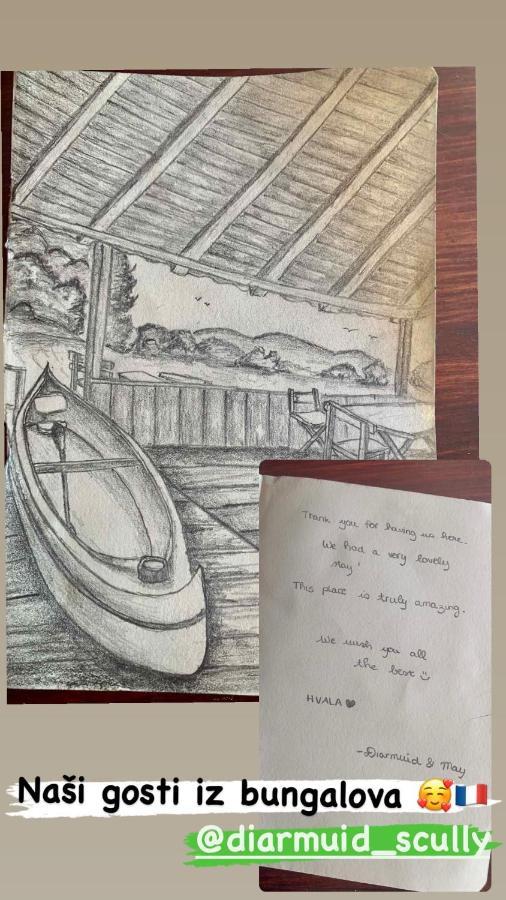 Thank you for having us here.
We had a very lovely
stay!
This place is truly amazing.
We wish you all
the best
HVALA
-Diarmuid & May
Naši gosti iz bungalova
@diarmuid_scully